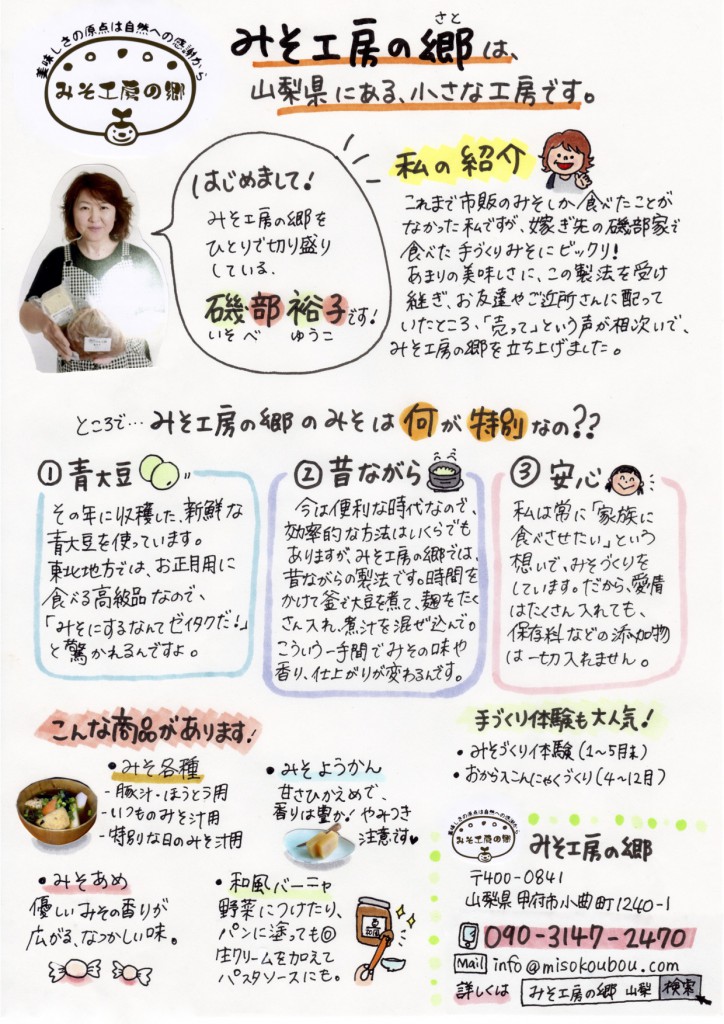 美味しさの原点は自然への感謝から
みそ工房の郷
さと
みそ工房の郷は、
山梨県にある、小さな工房です。
はじめまして!
みそ工房の郷を
ひとりで切り盛り
している、
磯部 裕子です!
いそべ ゆうこ
私の紹介
これまで市販のみそしか食べたことが
なかった私ですが、嫁ぎ先の磯部家で
食べた手づくりみそにビックリ!
あまりの美味しさに、この製法を受け
継ぎ、お友達やご近所さんに配って
いたところ、「売って」という声が相次いで、
みそ工房の郷を立ち上げました。
ところで…みそ工房の郷のみそは何が特別なの??
① 青大豆
その年に収穫した、新鮮な
青大豆を使っています。
東北地方では、お正月用に
食べる高級品なので、
「みそにするなんてゼイタクだ!」
と驚かれるんですよ。
② 昔ながら
今は便利な時代なので、
効率的な方法はいくらでも
ありますが、みそ工房の郷では、
昔ながらの製法です。時間を
かけて釜で大豆を煮て、麹をたく
さん入れ、煮汁を混ぜ込んで。
こういう一手間でみその味や
香り、仕上がりが変わるんです。
③ 安心
私は常に「家族に
食べさせたい」という
想いで、みそづくりを
しています。だから、愛情
はたくさん入れても、
保存料などの添加物
は一切入れません。
こんな商品があります!
• みそ各種
- 豚汁・ほうとう用
- いつものみそ汁用
- 特別な日のみそ汁用
• みそようかん
甘さひかえめで、
香りは豊か! やみつき
注意です♥
• みそあめ
優しいみその香りが
広がる、なつかしい味。
• 和風バーニャ
野菜につけたり、
パンに塗っても◎
生クリームを加えて
パスタソースにも。
手づくり体験も大人気!
• みそづくり体験(1~5月末)
• おから入こんにゃくづくり(4~12月)
美味しさの原点は自然への感謝から
みそ工房の郷
みそ工房の郷
〒400-0841
山梨県甲府市小曲町1240-1
090-3147-2470
Mail info@misokoubou.com
詳しくは みそ工房の郷 山梨 検索